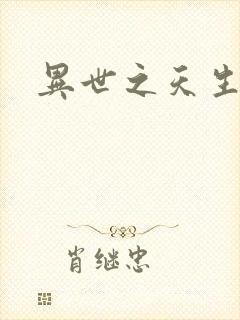 異世之天生
肖继忠